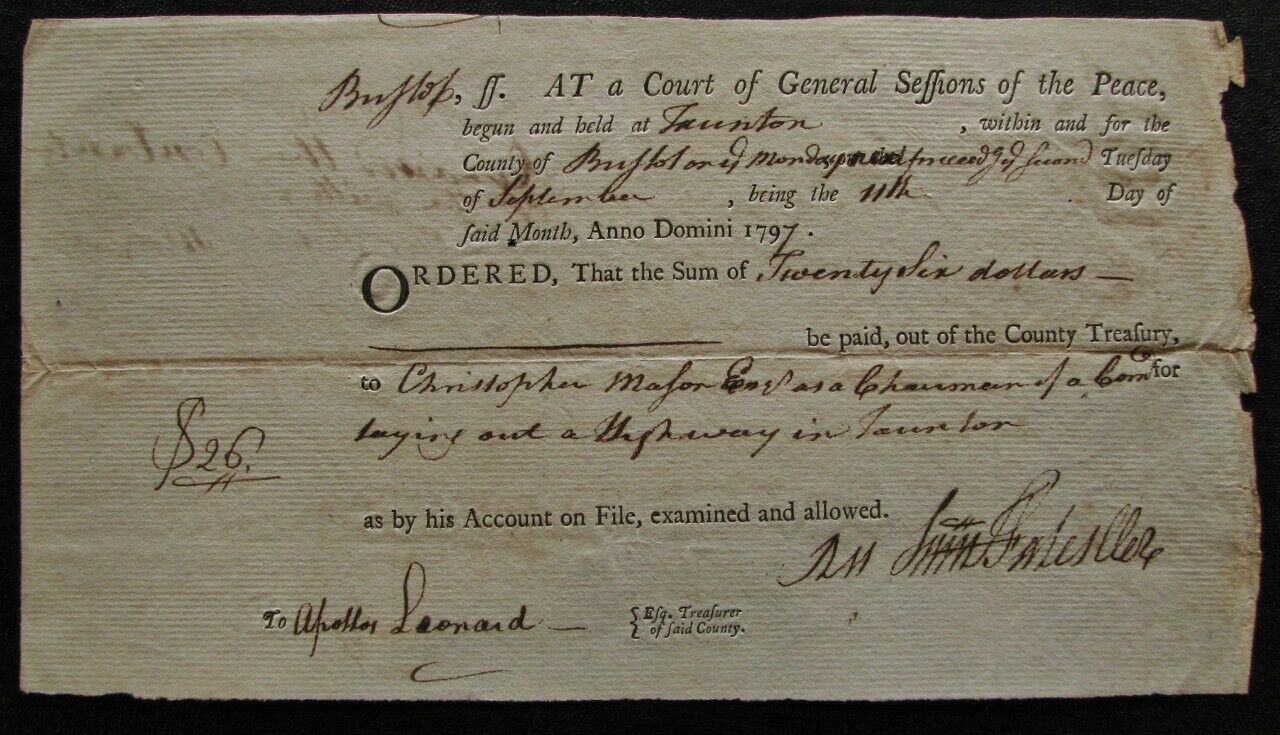 Bristol, ſſ. AT a Court of General Seſſions of the Peace,
begun and held at Taunton , within and for the
County of Bristol on yͤ Monday preceedg yͤ second Tueſday
of September , being the 11th Day of
ſaid Month, Anno Domini 1797.
ORDERED, That the Sum of Twenty Six dollars —
be paid, out of the County Treaſury,
to Christopher Maſon Esqr as a Chairman of a Comee for
laying out a Highway in Taunton
$26.
as by his Account on File, examined and allowed.
Att Sam Fales Cler
To Apollos Leonard — { Eſq. Treaſurer
{ of ſaid County.